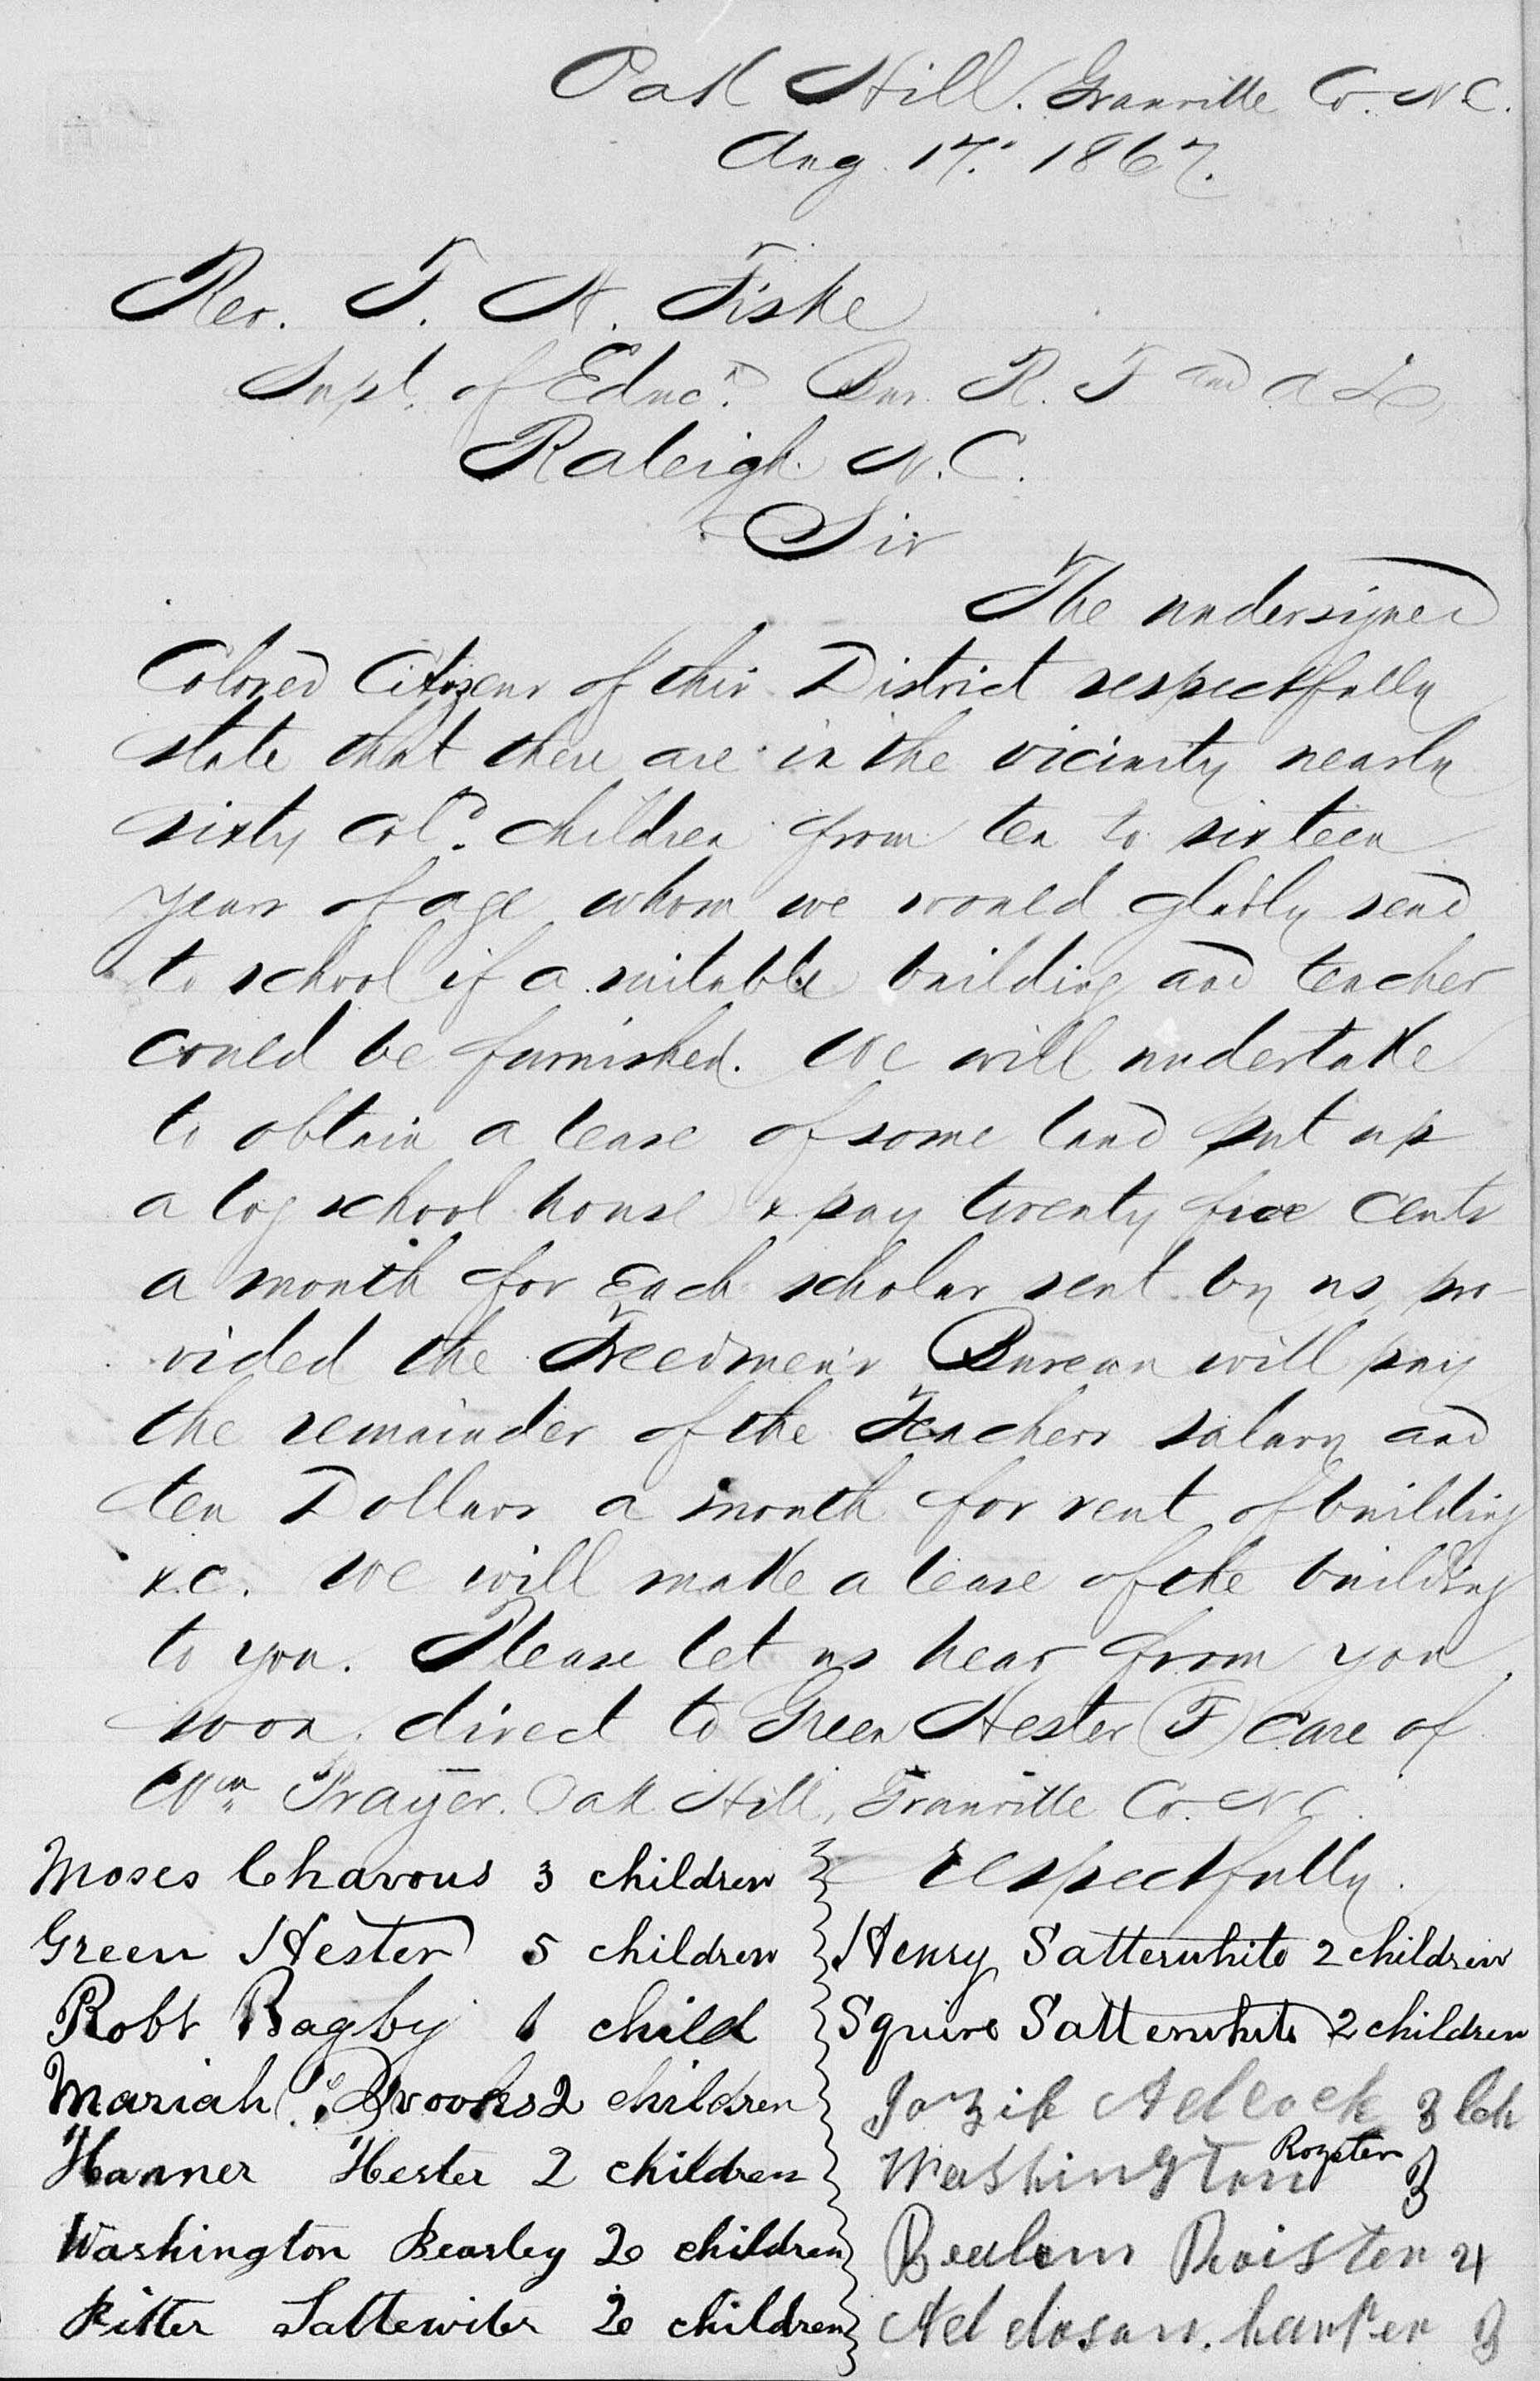 Oak Hill. Granville Co. N.C.
Aug. 17. 1867.
Rev. F. A. Fiske
Supt. of Educn. Bur. R. F and A L
Raleigh. N.C.
Sir
The undersigned
Colored Citizens of this District respectfully
state that there are in the vicinity nearly
sixty cold. children from ten to sixteen
years of age whom we would gladly send
to school if a suitable building and teacher
could be furnished. We will undertake
to obtain a lease of some land put up
a log school house & pay twenty five cents
a month for each scholar sent by us pro-
vided the Freedmen's Bureau will pay
the remainder of the Teachers salary and
ten Dollars a month for rent of building
&c. We will make a lease of the building
to you. Please let us hear from you
soon. direct to Green Hester (F) care of
Wm Oak Hill, Granville Co. N.C.
Moses Chavous 3 children respectfully.
Green Hester 5 children Henry Satterwhite 2 children
Robt Bagby 1 child Squire Satterwhite 2 children
Mariah Brooks 2 children Adcock 3 Ch
Hanner Hester 2 children Washington Royster 3
Washington Beasley 2 children Roister 4
Ritter Sattewiter 2 children 3